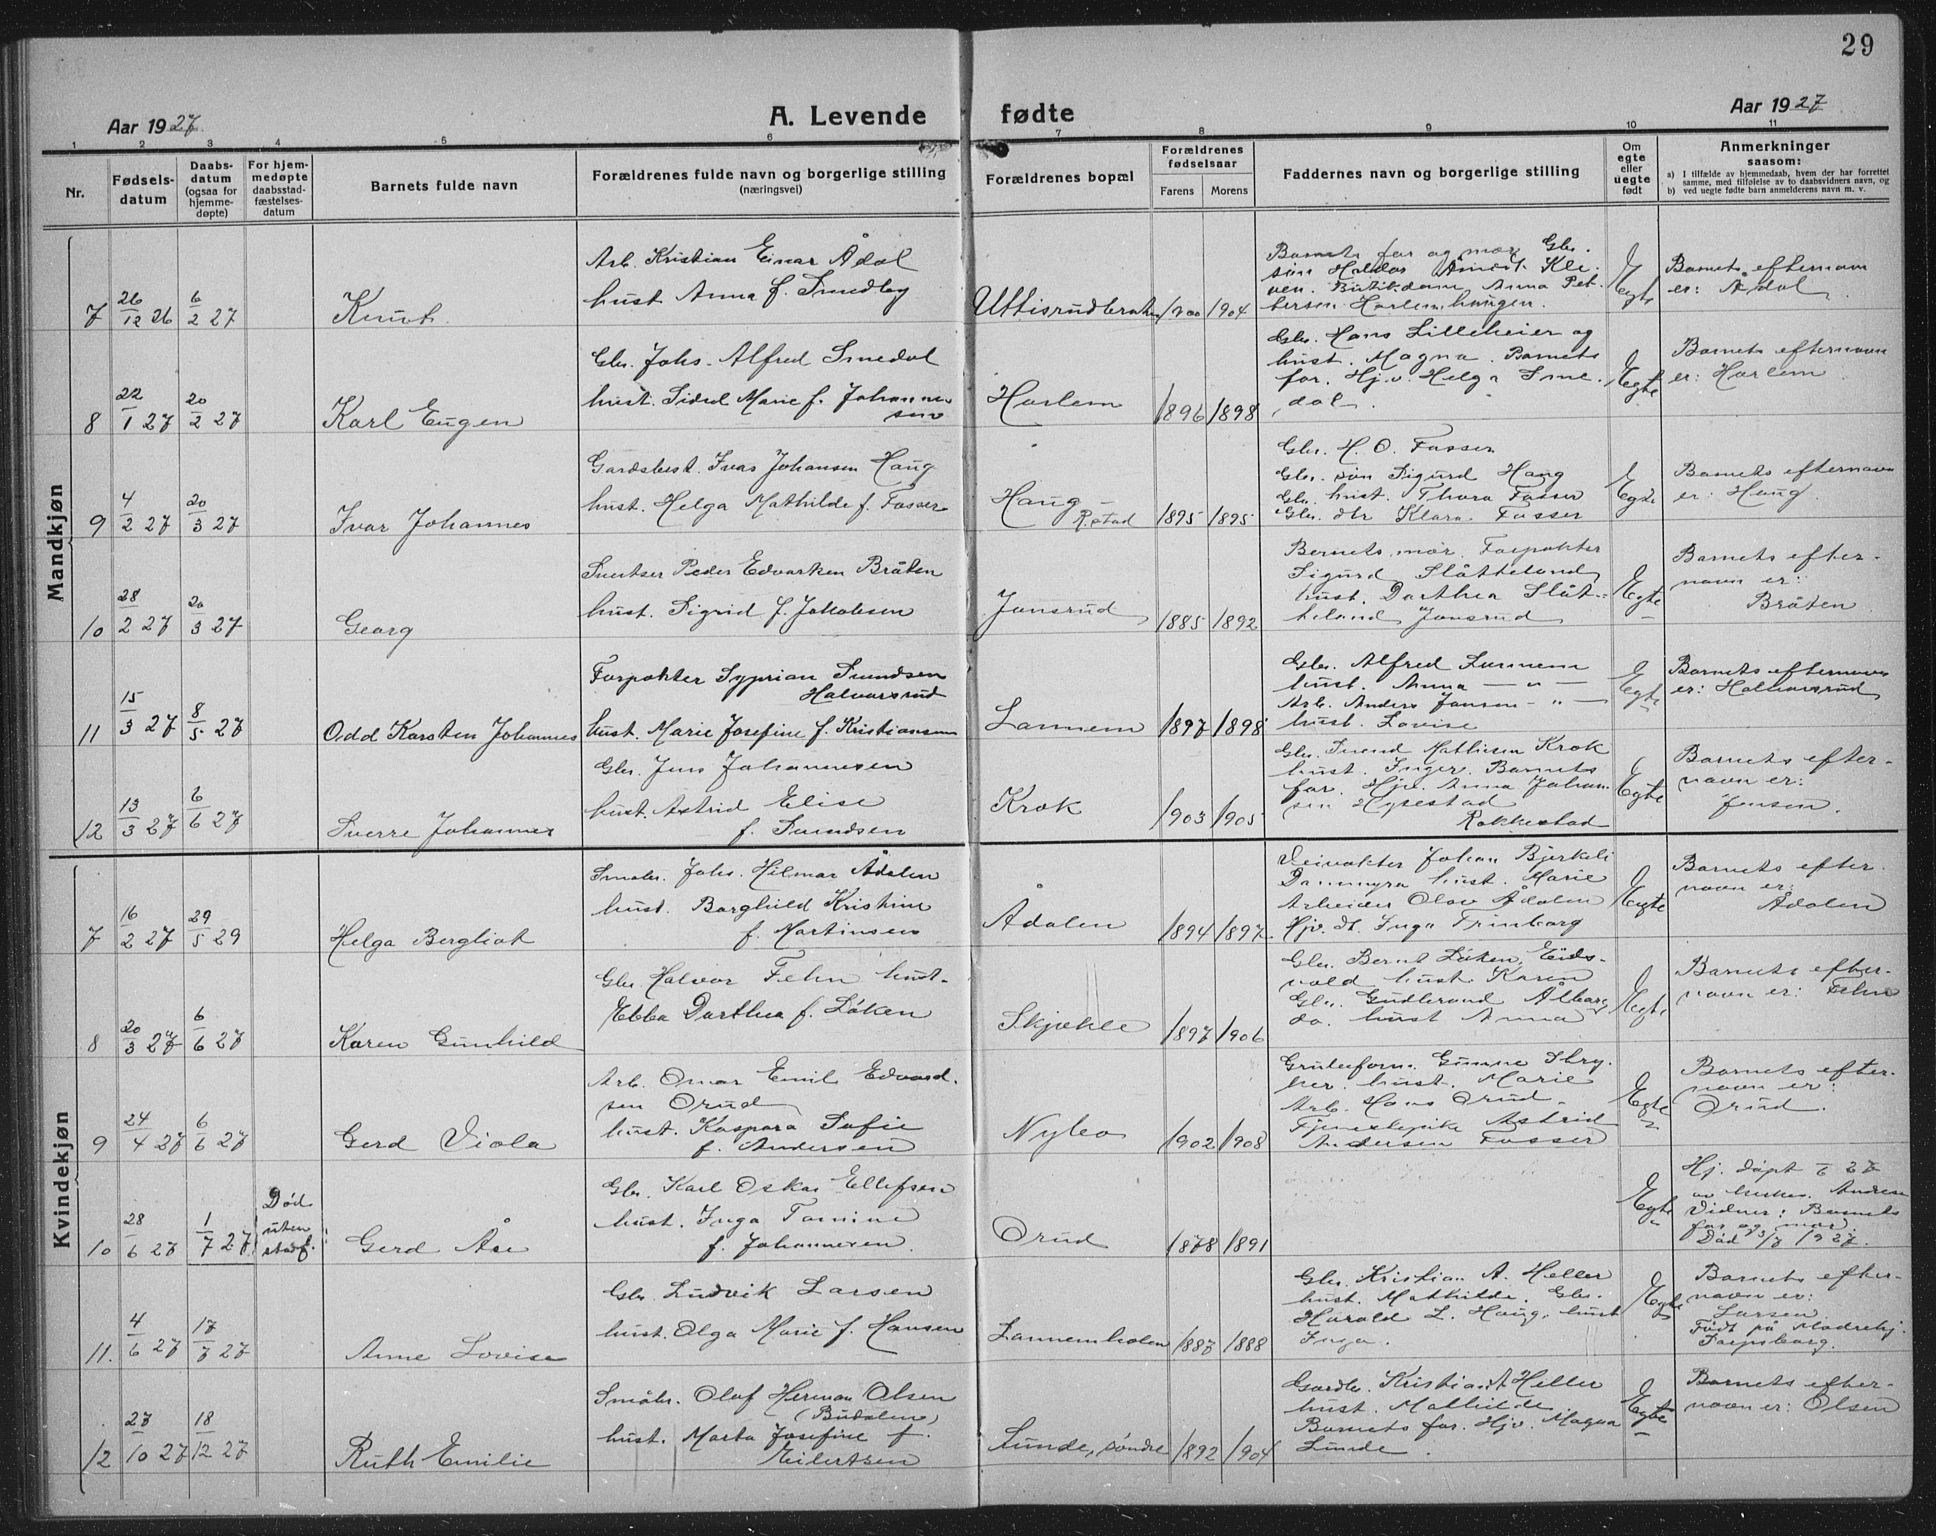 29
Aar 1927
A. Levende fødte
Aar 1927
1 2 3 4 5 6 7 8 9 10 11
Nr.
Fødsels-
datum
Daabs-
datum
(ogsaa for
hjemme-
døpte)
For hjem-
medøpte
daabsstad-
fæstelses-
datum
Barnets fulde navn
Forældrenes fulde navn og borgerlige stilling
(næringsvei)
Forældrenes bopæl
Forældrenes
fødselsaar
Farens Morens
Faddernes navn og borgerlige stilling
Om
egte
eller
uegte
født
Anmerkninger
saasom:
a) I tilfælde av hjemmedaab, hvem der har forrettet
samme, med tilføielse av to daabsvidners navn, og
b) ved uegte fødte barn anmelderens navn m. v.
Mandkjøn
7 26/12 26 6/2 27 Knut
Arb. Kristian Einar Ådal
hust Anna f. Smedby
1900 1904
Barnets far og mor Gbr.
Egte
Barnets efternavn
er: Ådal
8 22/1 27 20/2 27 Karl Eugen
Gbr. Johs. Alfred Smedal
hust. Sidsel Marie f. Johanne-
sen
Harlem 1896 1898
Gbr. Hans Lilleheier og
hust. Magna. Barnets
far. Hj.v. Helga Sme-
dal.
Egte
Barnets efternavn
er: Harlem
9 4/2 27 20/3 27 Ivar Johannes
Gardsbest. Ivar Johansen Haug
hust. Helga Mathilde f. Fosser
Haug
R.stad 1895 1895
Gbr. H. O. Fosser
Gbr. søn Sigurd Haug
Gbr. hust. Thora Fosser
Gbr. dtr Klara Fosser
Egte
Barnets efternavn
er: Haug.
10 28/2 27 20/3 27 Georg
Peder Edvartsen Bråten
hust. Sigrid f. Jakobsen
Jonsrud 1885 1892
Barnets mor. Forpakter
Sigurd Slåtteland
hust. Dorthea Slåt-
teland Jonsrud
Egte
Barnets efter-
navn er:
Bråten
11 15/3 27 8/5 27 Odd Karsten Johannes
Forpakter Syprian Svendsen
Halvorsrud
hust. Marie Josefine f. Kristiansen
Lannem 1897 1898
Gbr. Alfred Lannem
hust. Anna — " —
Arb. Anders Jansen — " —
hust. Lovise
Egte
Barnets efternavn
er: Halvorsrud
12 13/3 27 6/6 27 Sverre Johannes
Gbr. Jens Johannesen
hust. Astrid Elise
f. Svendsen
Krok 1903 1905
Gbr. Svend Mathisen Krok
hust. Inger. Barnets
far. Hjv. Anna Johan-
sen
Rakkestad
Egte
Barnets efter-
navn er:
Jensen.
Kvindekjøn
7 16/2 27 29/5 29 Helga Bergliot
Småbr. Johs. Hilmar Ådalen
hust. Borghild Kristine
f. Martinsen
Ådalen 1894 1897
Veivokter Johan Bjerkeli
hust. Marie
Arbeider Olav Ådalen
Hjv. dt. Inga Trinborg
Egte
Barnets efter-
navn er:
Ådalen
8 20/3 27 6/6 27 Karen Gunhild
Gbr Halvor Fehn hust-
Ebba Dorthea f. Løken
Skjækle 1897 1906
Gbr. Bernt Løken, Eids-
vold hust. Karen
Gbr. Gudbrand Ålborg
do. hust Anna
Egte
Barnets efter-
navn er: Fehn
9 24/4 27 6/6 27 Gerd Viola
Arb. Omar Emil Edvard-
sen Orud
hust. Kaspara Sofie
f. Andersen
Nybo 1902 1908
hust. Marie
Arb. Hans Orud.
Tjenestepike Astrid
Andersen Fosser
Egte
Barnets efter-
navn er:
Orud.
10 28/6 27 1/7 27 Død
uten
stadf. Gerd Åse
Gbr. Karl Oskar Ellefsen
hust. Inga Tomine
f. Johannesen.
Orud 1878 1891
Egte
Hj. døpt 1/7 27
Vidner: Barnets
far og mor.
Død 3/7 1927.
11. 4/6 27 17/7 27 Anne Lovise
Gbr Ludvik Larsen
hust. Olga Marie f. Hansen
Lannemholen 1887 1888
Gbr. Kristian A. Heller
hust. Mathilde. Gbr.
Harald L. Haug, hust
Inga.
Egte
Barnets efter-
navn er:
Larsen
Født på Mødrehj.
Sarpsborg.
12 27/10 27 18/12 27 Ruth Emilie
Småbr. Olaf Herman Olsen
(Budalen)
hust. Marta Josefine f.
Eilertsen
Lunde, søndre 1892 1904
Gardbr. Kristian A Heller
hust. Mathilde
Barnets far. Hjv. Magna
Lunde.
Egte
Barnets efter-
navn er: Olsen